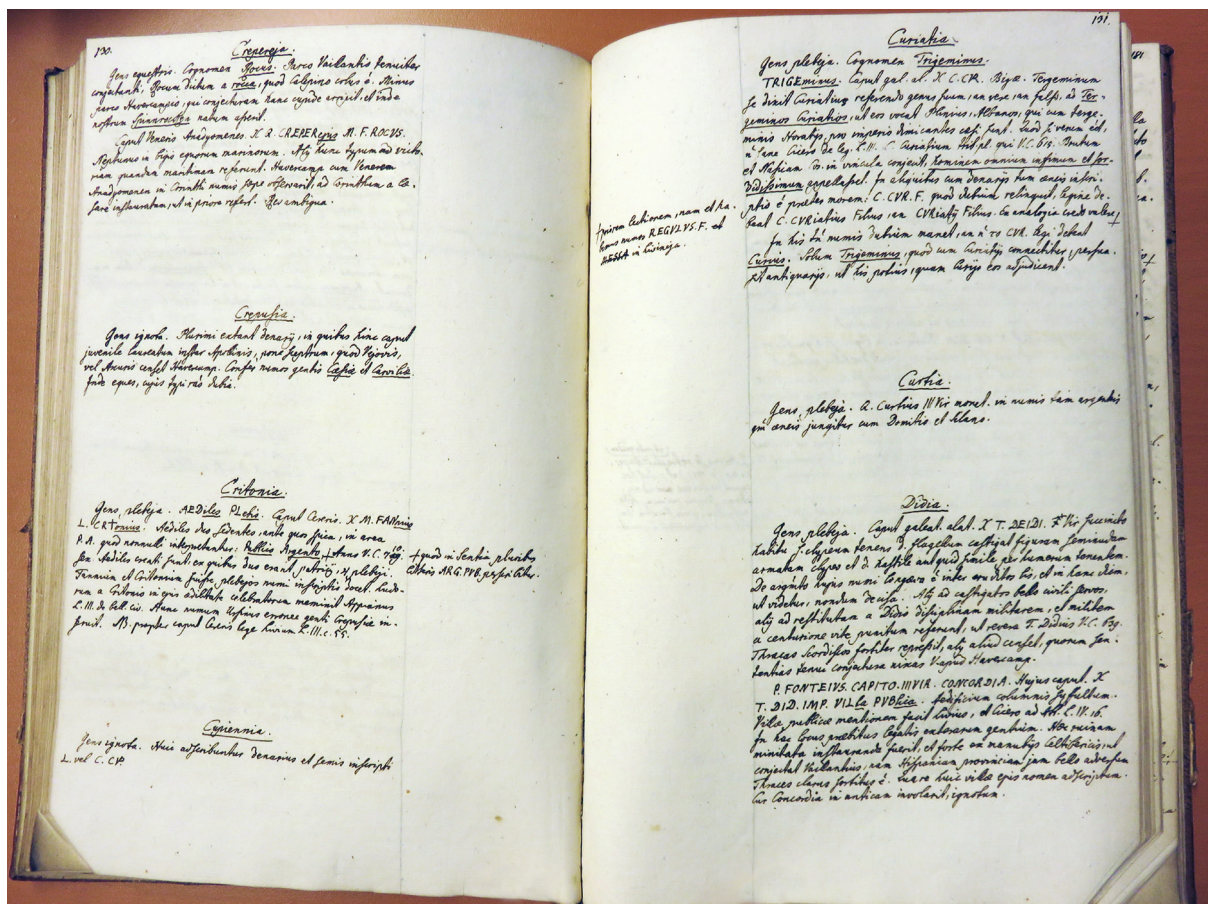 130.
Crepereja.
Gens equestris. Cognomen Rocus. Parco Vaillantis tenuiter
conjectanti, Rocum dictum a rocca, quod Calpino colus ē. Minus
parco Havercampo, qui conjecturam hanc cupide arripit, et inde
nostrum Spinnrocken natum asserit.
Caput Veneris Anadyomenes. X R. CREPEREjus M. F. ROCVS.
Neptunus in bigis equorum marinorum. Alij hunc typum ad victo-
riam quandam maritimam referunt. Havercamp cum Venerem
Anadyomenen in Corinthi numis sæpe observarit, ad Corinthum a Cæ-
sare instauratam, ut in priore refert. Res ambigua.
Crepusia.
Gens ignota. Plurimi extant denarij, in quibus hinc caput
juvenile laureatum instar Apollinis, pone sceptrum, quod Vejovis,
vel Anxuris censet Havercamp. Confer numos gentis Cæsia et Carvilia.
Inde eques, cujus typi rāo dubia.
Critonia.
Gens plebeja. AEDiles PLebis. Caput Cereris. X M. FANnius
L. CRTonius. Aediles duo sedentes, ante quos spica, in area
P. A. quod nonnulli interpretantur: Publico Argento + Anno V.C.
sex Aediles creati sunt, ex quibus duo erant patricij, 4 plebeji.
Fannium et Critonium fuisse plebejos numi inscriptio docet. Ludo-
rum a Critonio in ejus ædilitate celebratorum meminit Appianus
L. III. de bell. civ. Hunc numum Ursinus erronee genti Crepusiæ in-
seruit. NB. propter caput Cereris lege Livium L. III. c. 55.
+ quod in Sentia pluribus
litteris ARG. PVB. perscribitur.
Cupiennia.
Gens ignota. Huic adscribuntur denarius et semis inscripti
L. vel C. CVP.
131.
Curiatia.
Gens plebeja. Cognomen Trigeminus.
TRIGEminus. Caput gal. al. X C. CVR. Bigæ. Tergeminum
se dixit Curiatius referendo genus suum, an vere, an falso, ad Ter-
geminos Curiatios, ut eos vocat Plinius, Albanos, qui cum terge-
minis Horatijs, pro imperio dimicantes cæsi sunt. Quod si verum est,
ñ sane Cicero de leg. L. III. C. Curiatium trib. pl. qui V.C. 615. Brutum
et Nasicam Cos. in vincula conjecit, hominem omnium infimum et sor-
didissimum appellasset. In aliquibus tum denarijs tum æneis inscri-
ptio ē præter morem: C. CVR. F. quod dubium relinquit, legine de-
beat C. CVRiatius Filius, an CVRiatij Filius. Ea analogia credo valere +
+ priorem lectionem, nam et ha-
bemus numos REGVLVS. F. et
in Livineja.
In his tñ numis dubium manet, an ñ το CVR. legi debeat
Curius. Solum Trigeminus, quod cum Curiatijs connectitur, persua-
sit antiquarijs, ut his potius, quam Curijs eos adjudicent.
Curtia.
Gens plebeja. Q. Curtius IIIVir monet. in numis tam argenteis
qm̄ æneis jungitur cum Domitio et Silano.
Didia.
Gens plebeja. Caput galeat. alat. X T. DEIDI. Vir succincto
habitu s. clypeum tenens d. flagellum castigat figuram seminudam
armatam clypeo et d. hastile aut quid simile per humerum tenentem.
De argu̅to hujus numi longæva ē inter eruditos lis, et in hanc diem,
ut videtur, nondum decisa. Alij ad castigatos bello civili servos,
alij ad restitutam a Didio disciplinam militarem, et militem
a centurione vite punitum referunt, ut revera T. Didius V.C. 639.
Thracas Scordiscos fortiter repressit, alij aliud censet, quorum sen-
tentias tenui conjectura nixas V. apud Havercamp.
P. FONTEIVS. CAPITO. IIIVIR. CONCORDIA. Hujus caput. X
T. DID. IMP. VILla PVBlica. Aedificium columnis suffultum.
Villæ publicæ mentionem facit Livius, et Cicero ad Att. L. IV. 16.
In hac locus præbitus legatis exterarum gentium. Hæc ruinam
minitata instauranda fuerit, et forte ex manubijs Celtibericis, ut
conjectat Vaillantius, nam Hispaniam provinciam jam bello adversum
Thraces clarus sortitus ē. Quare huic villæ ejus nomen adscriptum.
Cur Concordia in anticam involarit, ignotum.